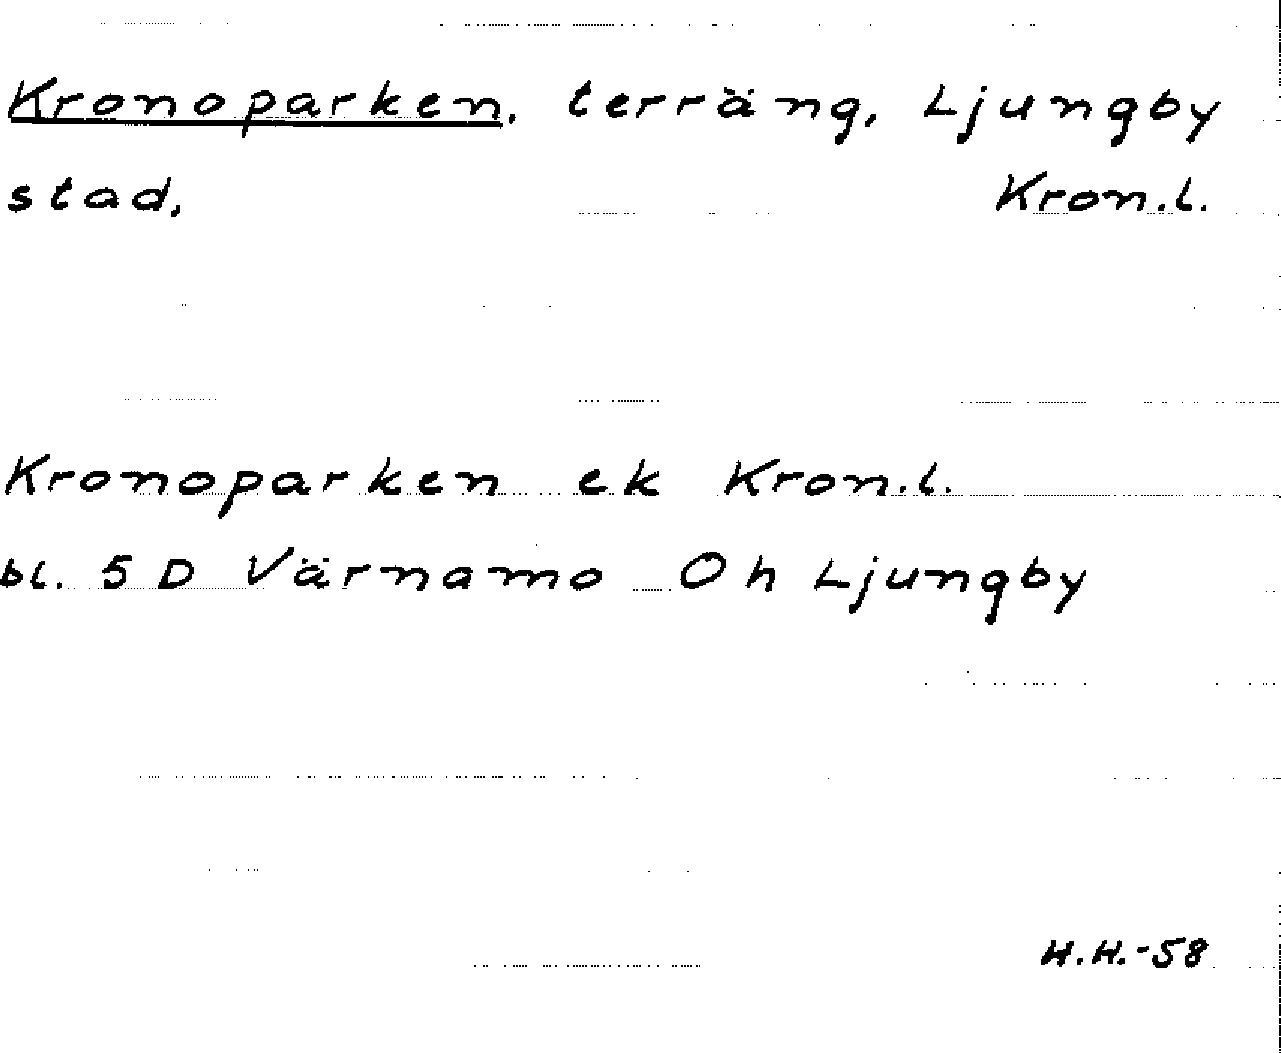 Kronoparken, terräng, Ljungby
stad, Kron.l.
Kronoparken ek Kron.l.
bl. 5 D Värnamo Oh Ljungby
H.H.-58